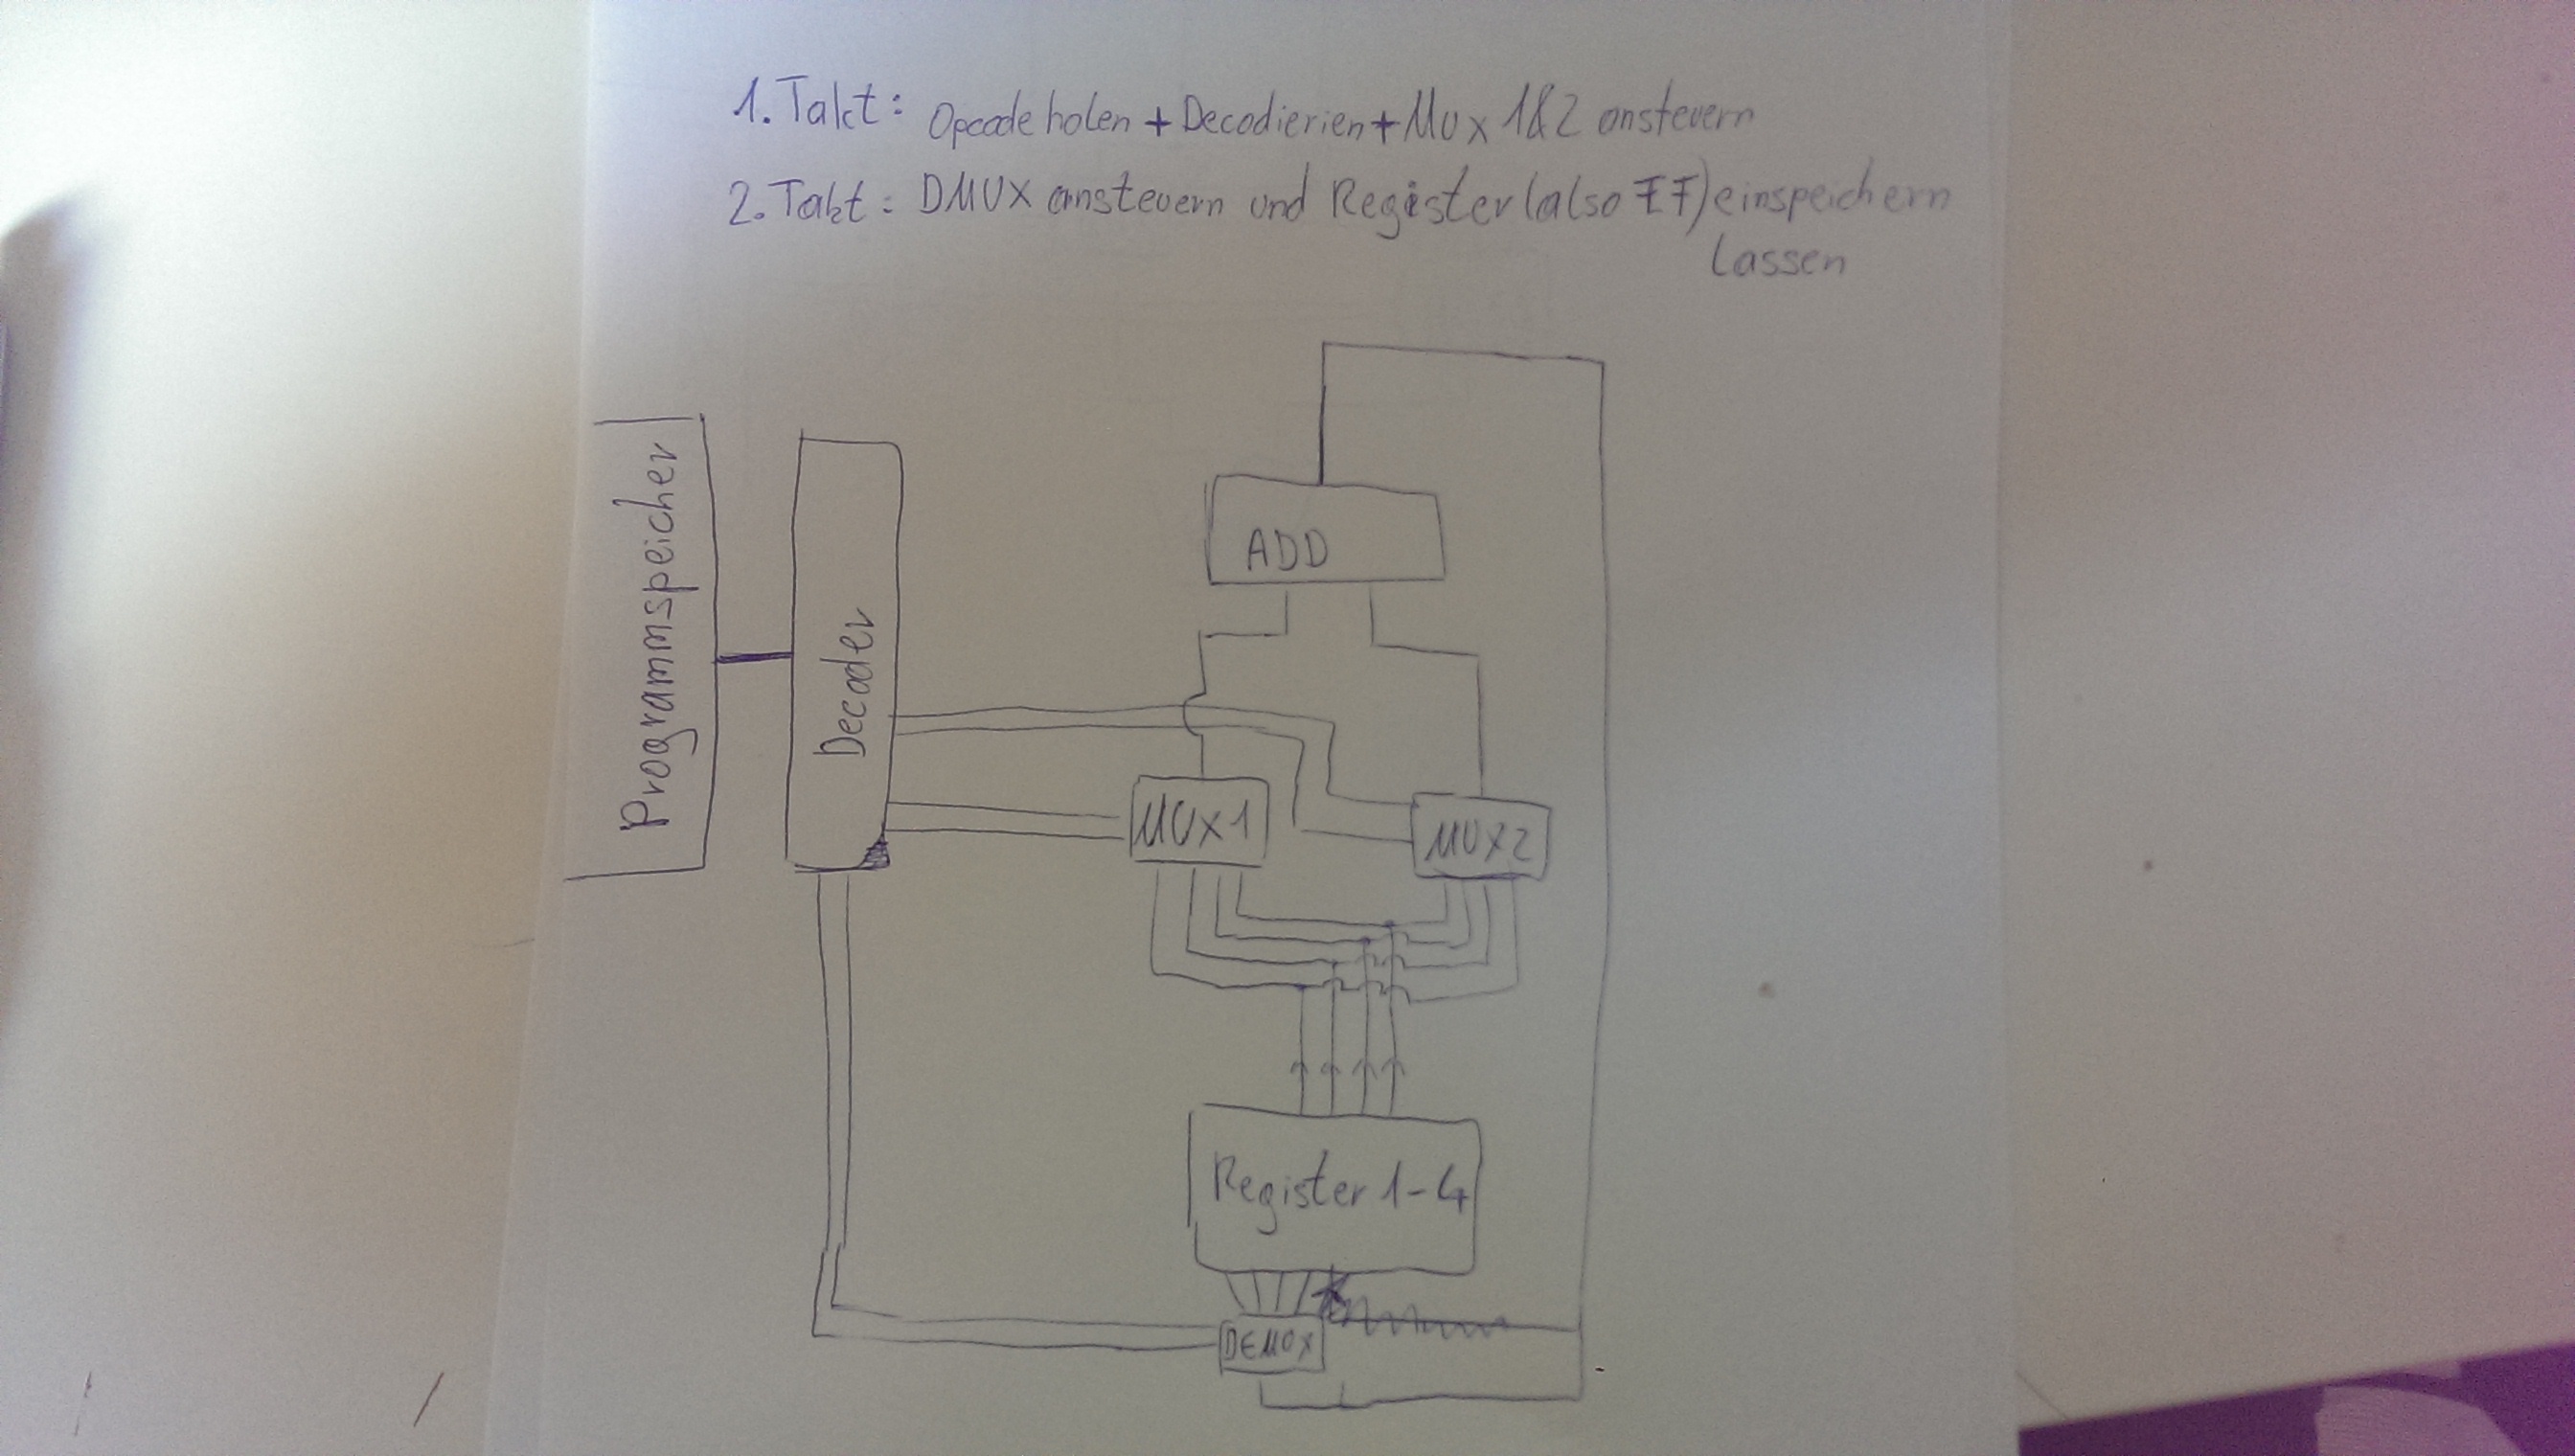 1. Takt: Opcode holen + Decodierien + Mux 1&2 ansteuern
2. Takt: DMUX ansteuern und Register (also FF) einspeichern
lassen
Programmspeicher
Decoder
ADD
MUX1
MUX2
Register 1-4
DEMUX